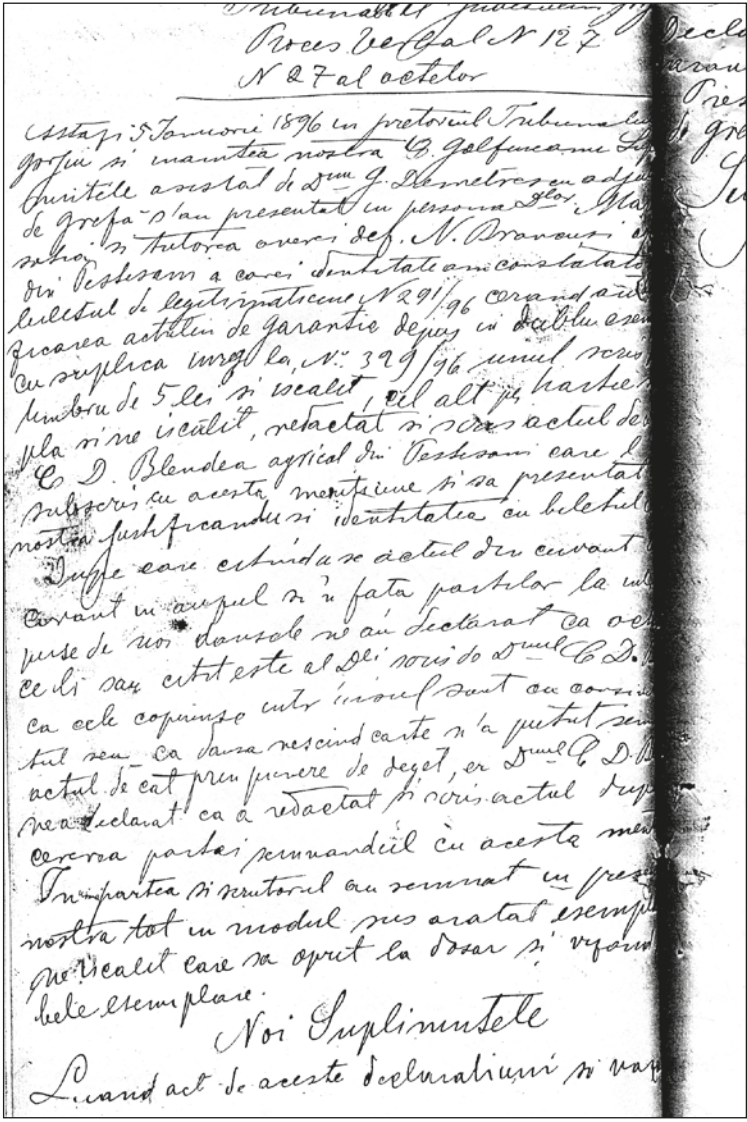 Tribunalul
Proces Verbal N 127
N 27 al actelor
Astazi 5 Ianuarie 1896 in pretoriul Tribunalu
gorjiu si inaintea nostra
asistat de Dnu G. Demetrescu adju
de grefa s'au presentat in persona Dlor. Ma
si tutorea averei def. N. Brancusi
din Pestesani a carei identitate am constatat
biletul de legitimatiune N 291/96 cerand
ficarea actului de garantie depus in dublu exem
cu suplica inreg la No 399/96 unul scris
timbru de 5 lei si iscalit, cel alt pe hartie
pla si ne iscalit, redactat si scris actul de
C D. Blendea agricol din Pestesani care l
subscris cu acesta mentiune si sa presentat
nostra justificandusi identitatea cu biletul
Dupe care citinduse actul din cuvant
cuvant in aupul si in fata partilor la int
puse de noi dansele ne au declarat ca
ce li sau citit este al Dei scris de Dnul C D.
ca cele coprinse intr'insul sunt cu consim
tul seu ca dansa nesciind carte n'a putut sem
actul de cat prin punere de deget, er Dnul C D. B
nea declarat ca a redactat si scris actul dup
cererea partei semnandul cu acesta men
partea si scriitorul au semnat in prese
nostra tot in modul sus aratat exempl
ne iscalit care sa oprit la dosar si
bele exemplare.
Noi Suplimentele
Luand act de aceste declaratiuni si